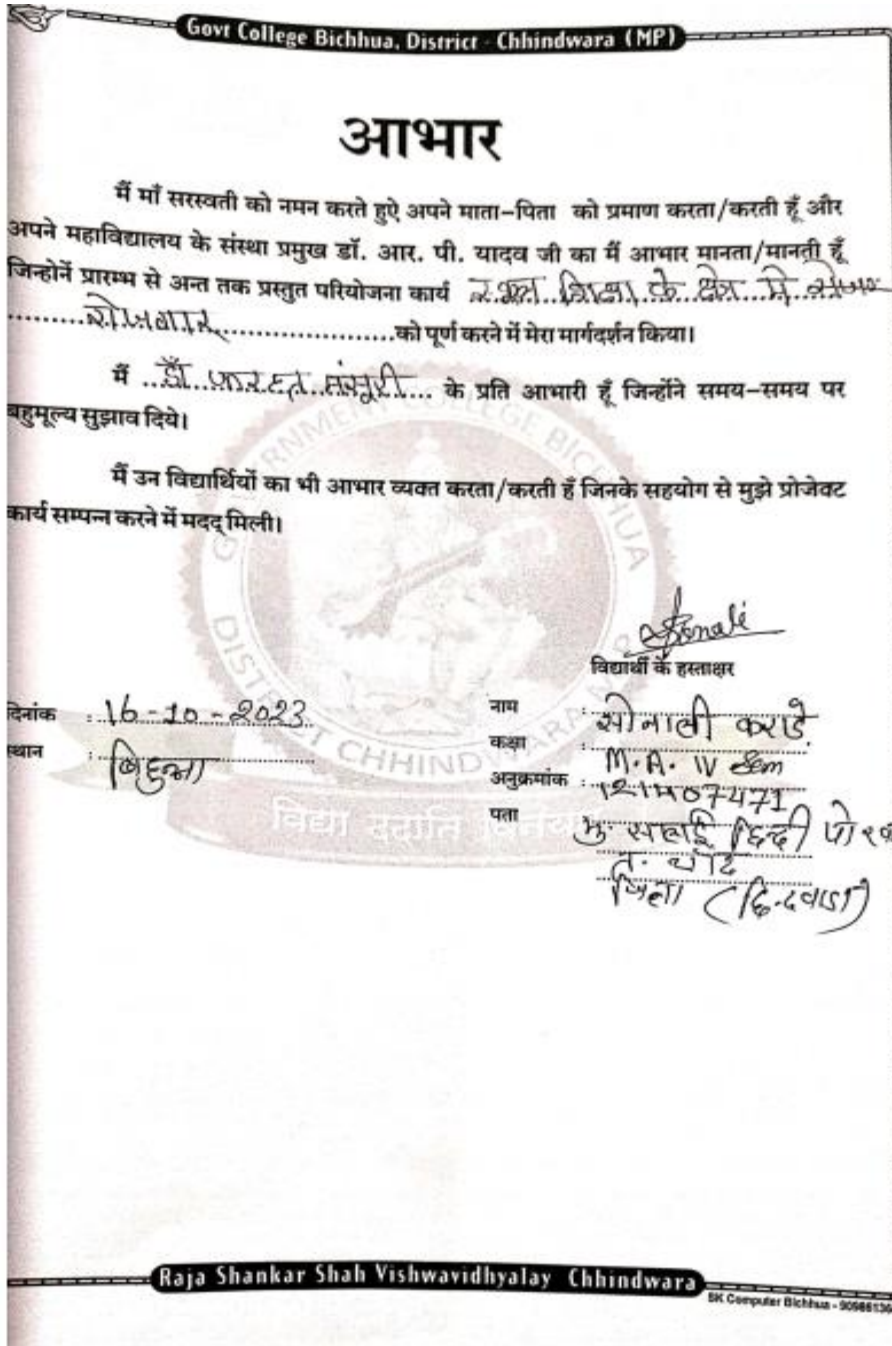 Govt College Bichhua, District - Chhindwara (MP)
आभार
मैं माँ सरस्वती को नमन करते हुऐ अपने माता-पिता को प्रमाण करता/करती हूँ और
अपने महाविद्यालय के संस्था प्रमुख डॉ. आर. पी. यादव जी का मैं आभार मानता/मानती हूँ
जिन्होनें प्रारम्भ से अन्त तक प्रस्तुत परियोजना कार्य शिक्षा के क्षेत्र मे
रोजगार को पूर्ण करने में मेरा मार्गदर्शन किया।
मैं डॉ. फरहत मंसूरी के प्रति आभारी हूँ जिन्होंने समय-समय पर
बहुमूल्य सुझाव दिये।
मैं उन विद्यार्थियों का भी आभार व्यक्त करता/करती हूँ जिनके सहयोग से मुझे प्रोजेक्ट
कार्य सम्पन्न करने में मदद् मिली।
GOVERNMENT COLLEGE BICHHUA
DISTRICT CHHINDWARA M.P.
विद्या ददाति विनयं
Sonali
विद्यार्थी के हस्ताक्षर
दिनांक : 16-10-2023
स्थान : बिछुआ
नाम : सोनाली कराडे
कक्षा : M.A. IV Sem
अनुक्रमांक : 121407471
पता
त. चांद
जिला (छिन्दवाडा)
Raja Shankar Shah Vishwavidhyalay Chhindwara
SK Computer Bichhua - 90986136